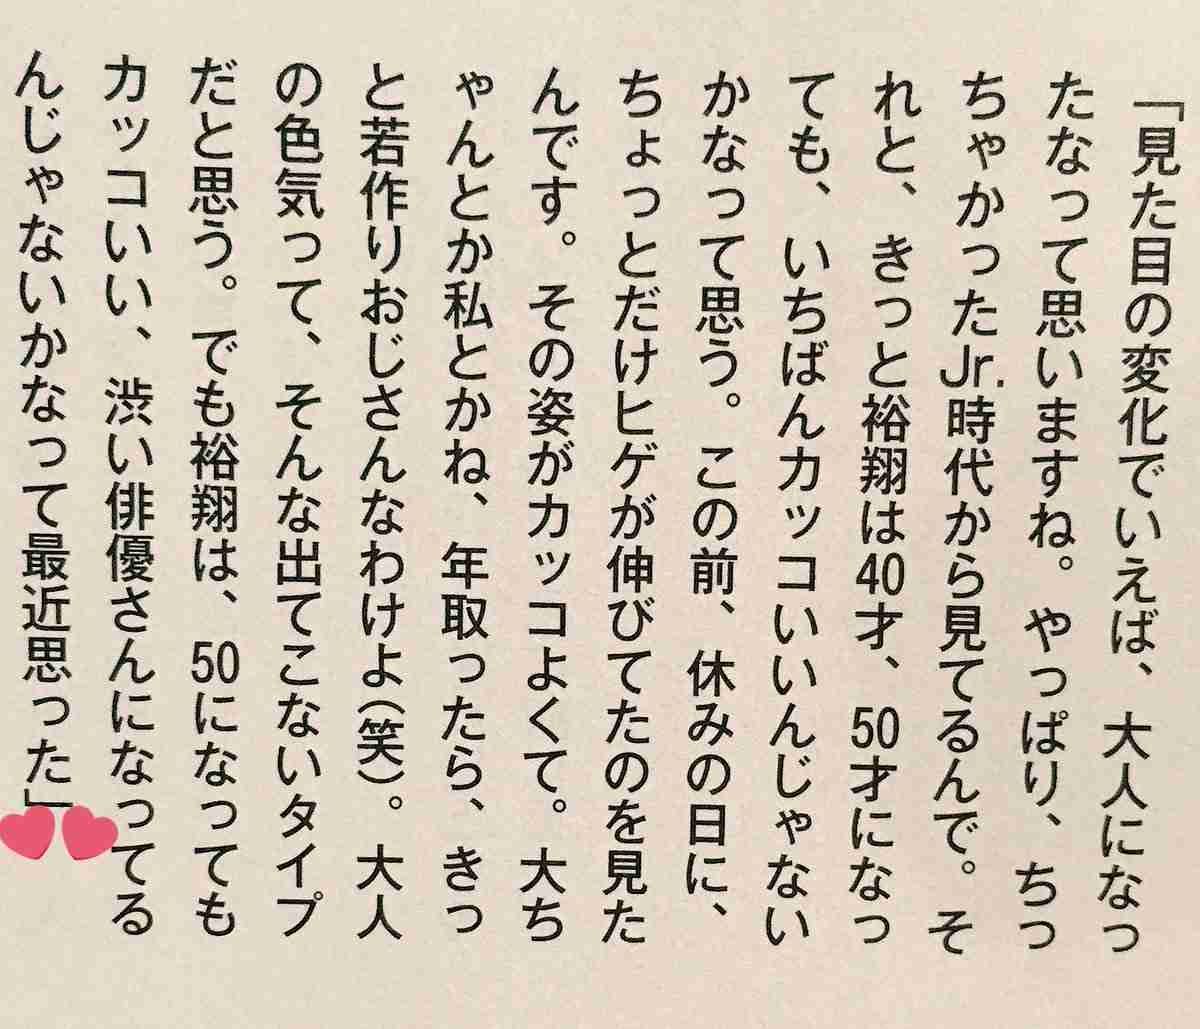 「見た目の変化でいえば、大人になっ
たなって思いますね。やっぱり、ちっ
ちゃかったJr.時代から見てるんで。そ
れと、きっと裕翔は40才、50才になっ
ても、いちばんカッコいいんじゃない
かなって思う。この前、休みの日に、
ちょっとだけヒゲが伸びてたのを見た
んです。その姿がカッコよくて。大ち
ゃんとか私とかね、年取ったら、きっ
と若作りおじさんなわけよ(笑)。大人
の色気って、そんな出てこないタイプ
だと思う。でも裕翔は、50になっても
カッコいい、渋い俳優さんになってる
んじゃないかなって最近思った」